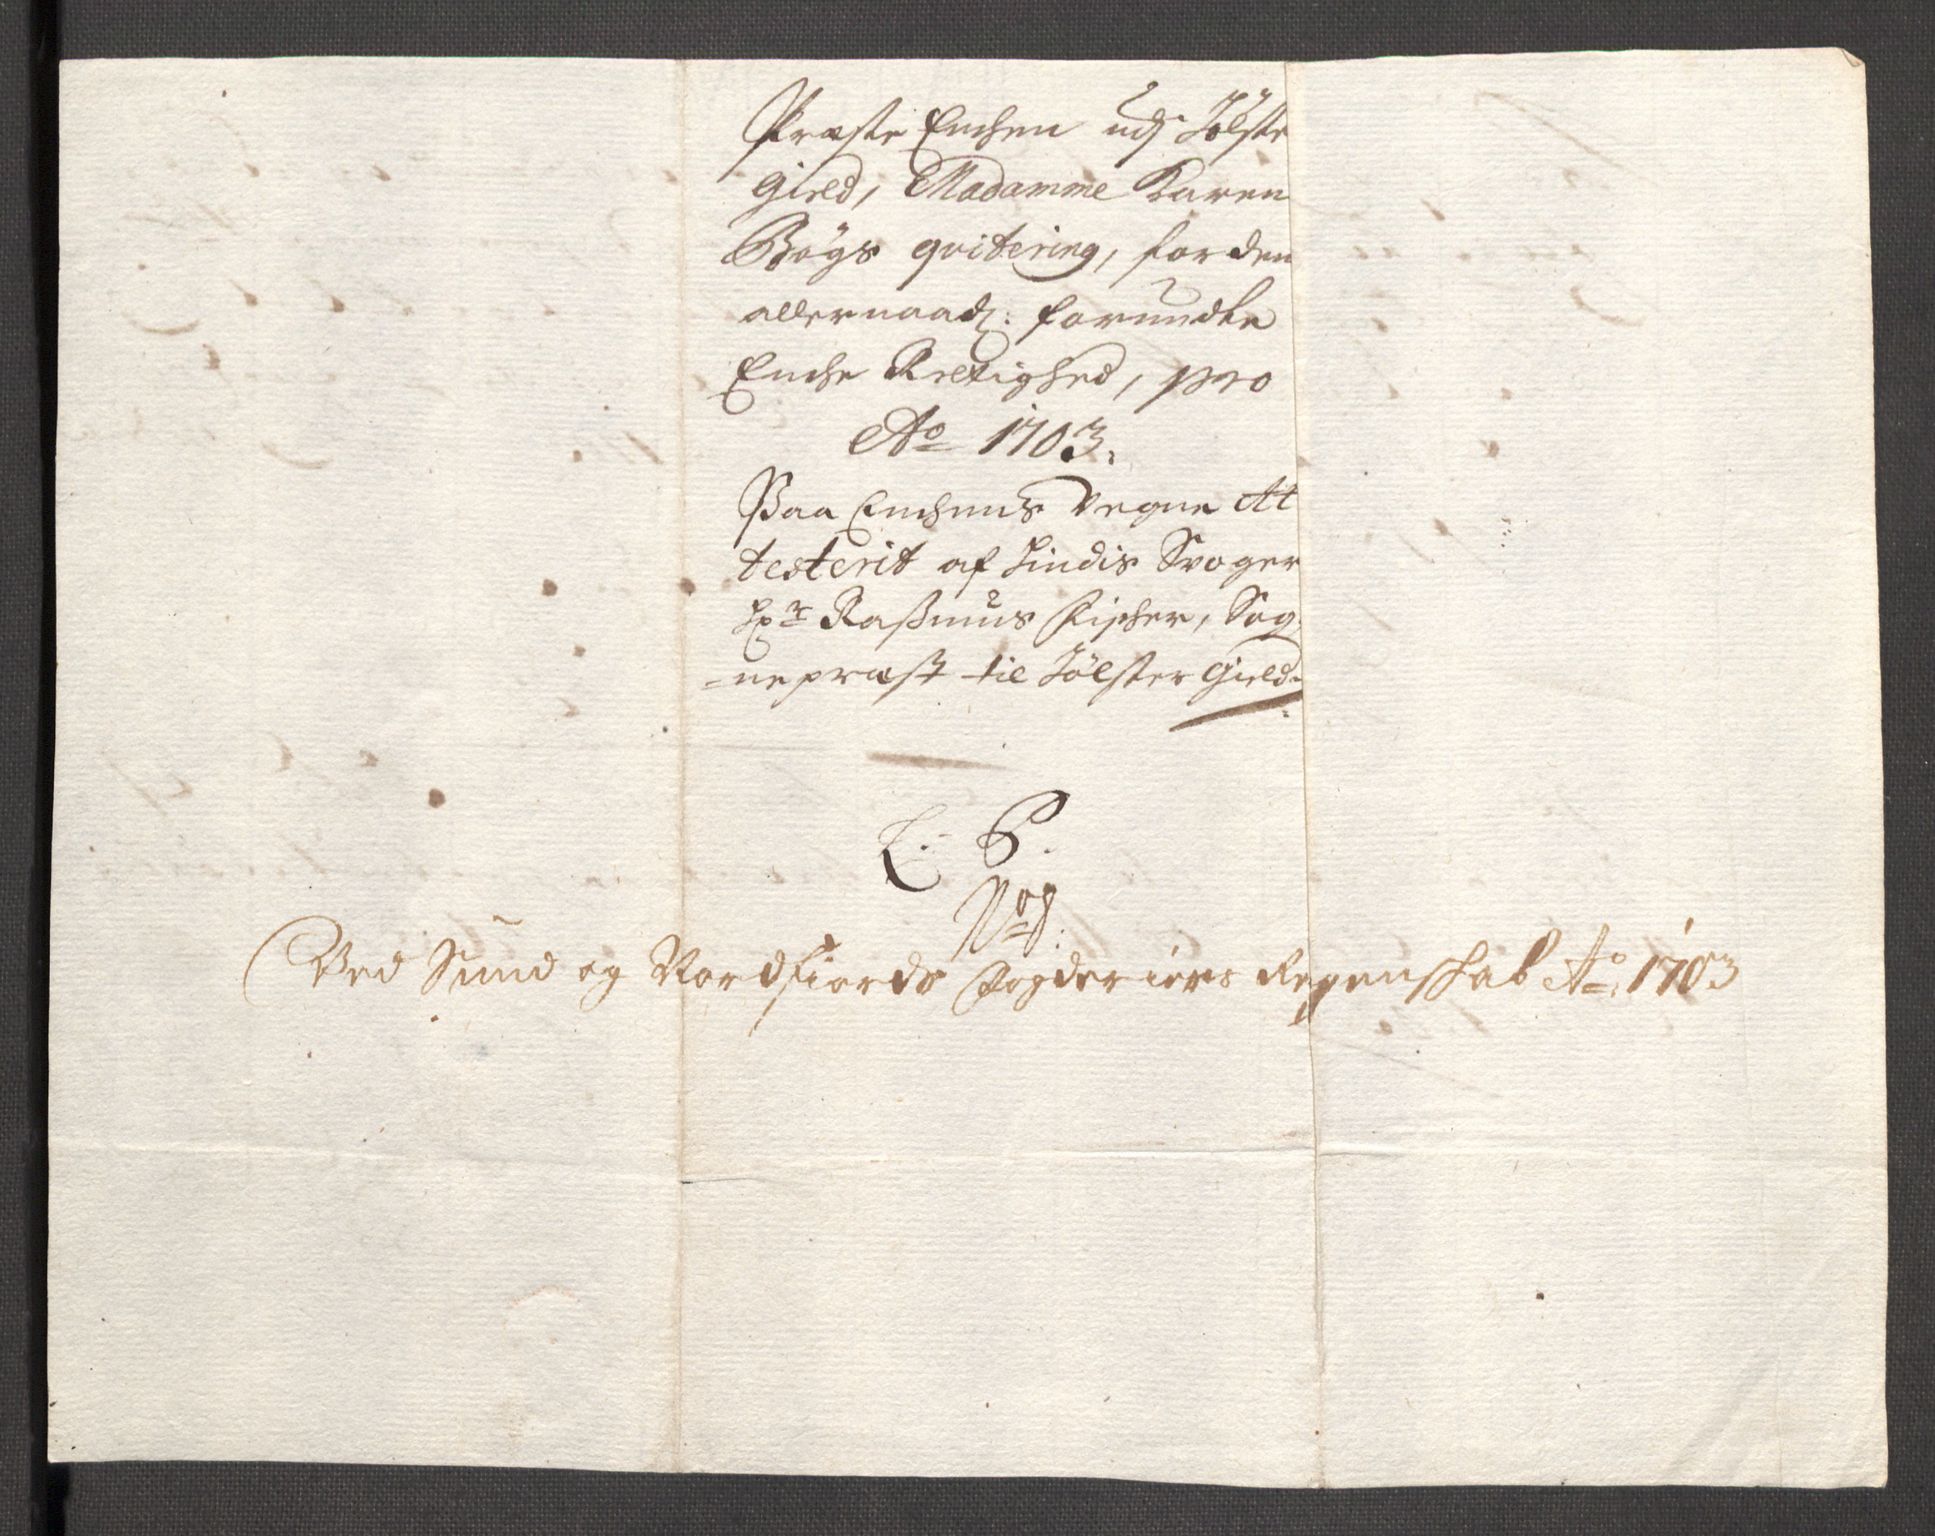 Præste Enchen udj Jölster
Gield, Madamme Karen
Bögs qvitering, for den
allernaad: forundte
Enche Rettighed, pro
Ao 1703.
Paa Enchens Vegne At
testerit af hindis Svoger
Hr Raßmus Fischer, Sog
=nepræst til Jölster Gield.
L. 6.
Ved Sund og Nordfiords Fogderiers Regenskab Ao. 1703